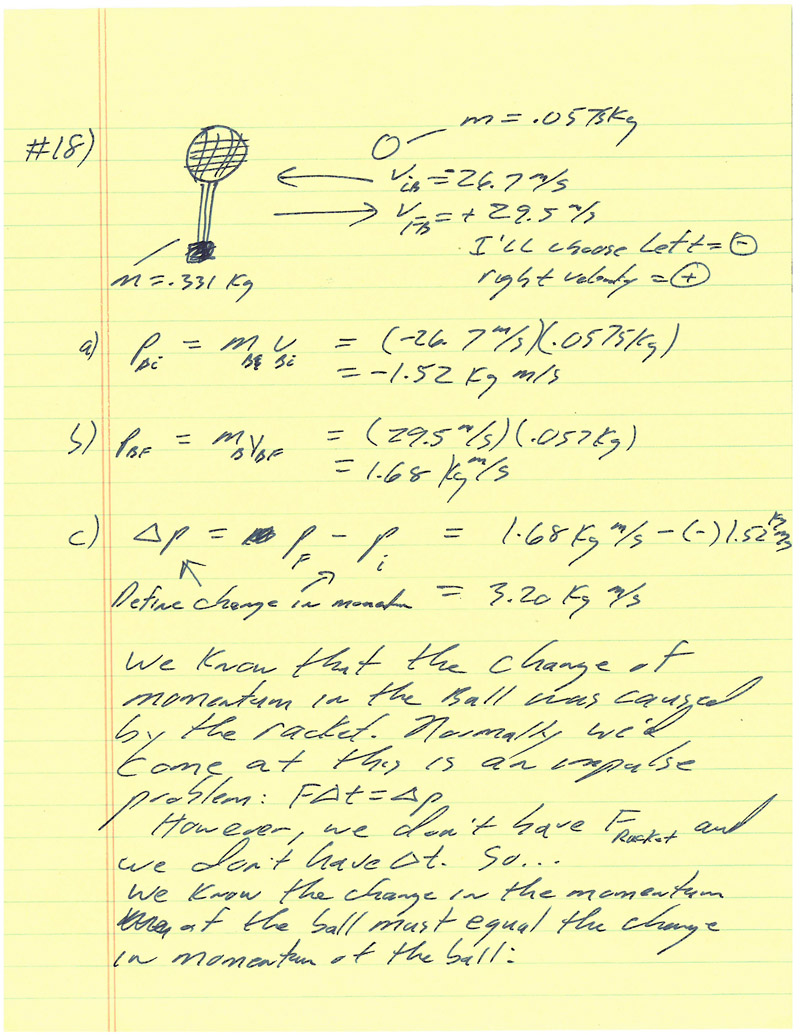 #18)
m = .0575Kg
V iB = 26.7 m/s
V FB = + 29.5 m/s
I'll choose Left = ⊖
right velocity = ⊕
m = .331 Kg
a) P Bi = m B V Bi = (-26.7 m/s)(.0575Kg)
= -1.52 Kg m/s
b) P BF = m B V BF = (29.5 m/s)(.057Kg)
= 1.68 Kg m/s
c) Δp = P F - P i = 1.68 Kg m/s - (-)1.52 Kg m/s
Define change in momentum = 3.20 Kg m/s
We know that the change of
momentum in the Ball was caused
by the racket. Normally we'd
come at this is an impulse
problem: FΔt = Δp
However, we don't have F Racket and
we don't have Δt. So...
we know the change in the momentum
of the ball must equal the change
in momentum of the ball: